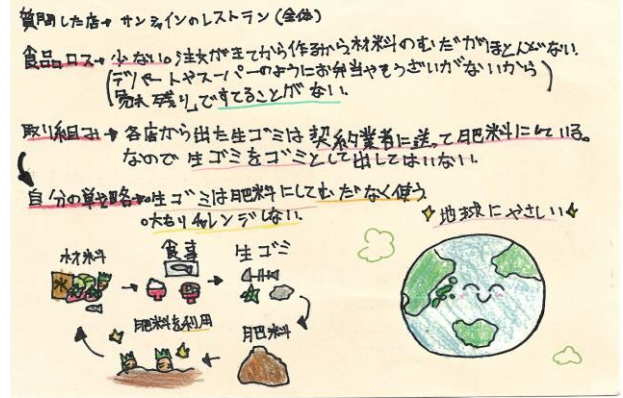 質問した店→サンシャインのレストラン(全体)
食品ロス→少ない。注文がきてから作るから材料のむだがほとんどない。
(デパートやスーパーのようにお弁当やそうざいがないから
「売れ残り」ですてることがない。)
取り組み→各店から出た生ゴミは契約業者に送って肥料にしている。
なので生ゴミをゴミとして出してはいない。
自分の戦略→生ゴミは肥料にしてむだなく使う。
大もりチャレンジしない。
地球にやさしい
材料
食事
生ゴミ
米
肥料を利用
肥料